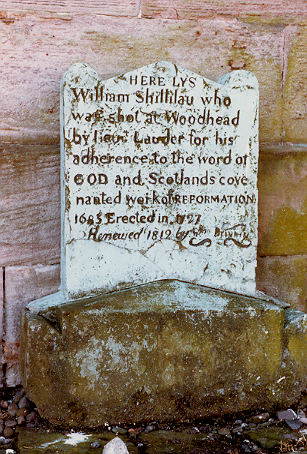 HERE LYS
William Shillilau who
was shot at Woodhead
by lieut Lauder for his
adherence to the word of
GOD and Scotlands cove
nanted work of REFORMATION
1685 Erected in 1727
Renewed 1812 by